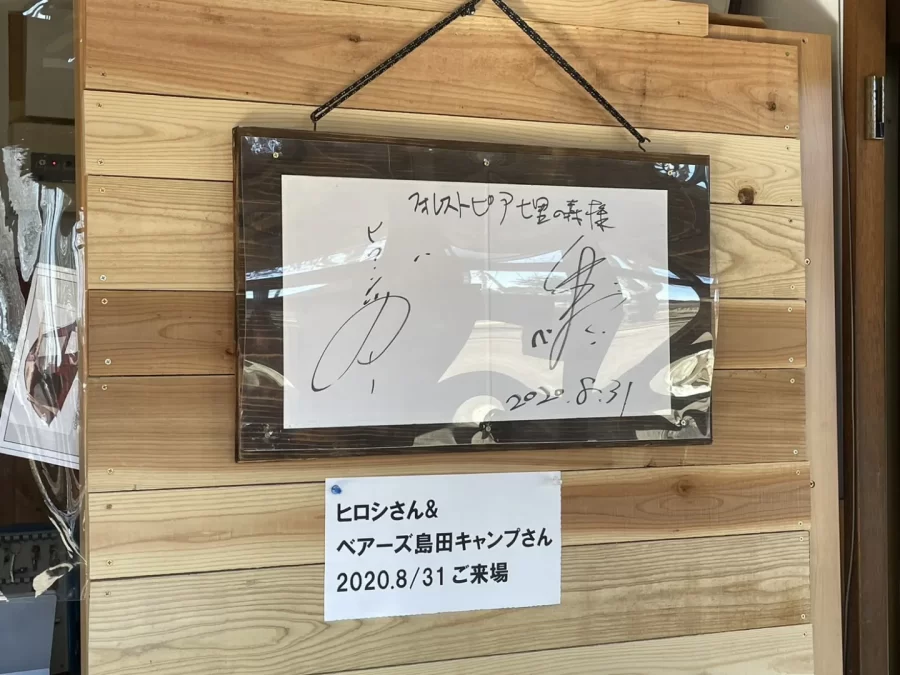 フォレストピア七里の森様
ヒロシ
2020.8.31
ヒロシさん&
ベアーズ島田キャンプさん
2020.8/31ご来場